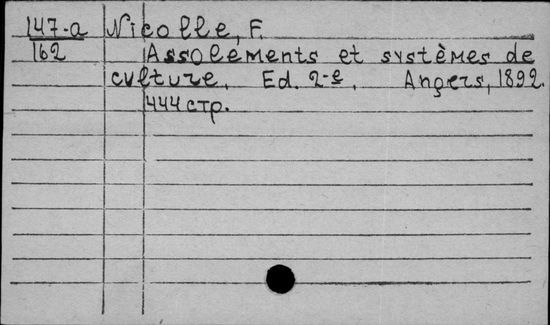 147-a Nicolle, F.
162 Assolements et systèmes de
culture. Ed. 2-e. Angers, 1892.
444 стр.